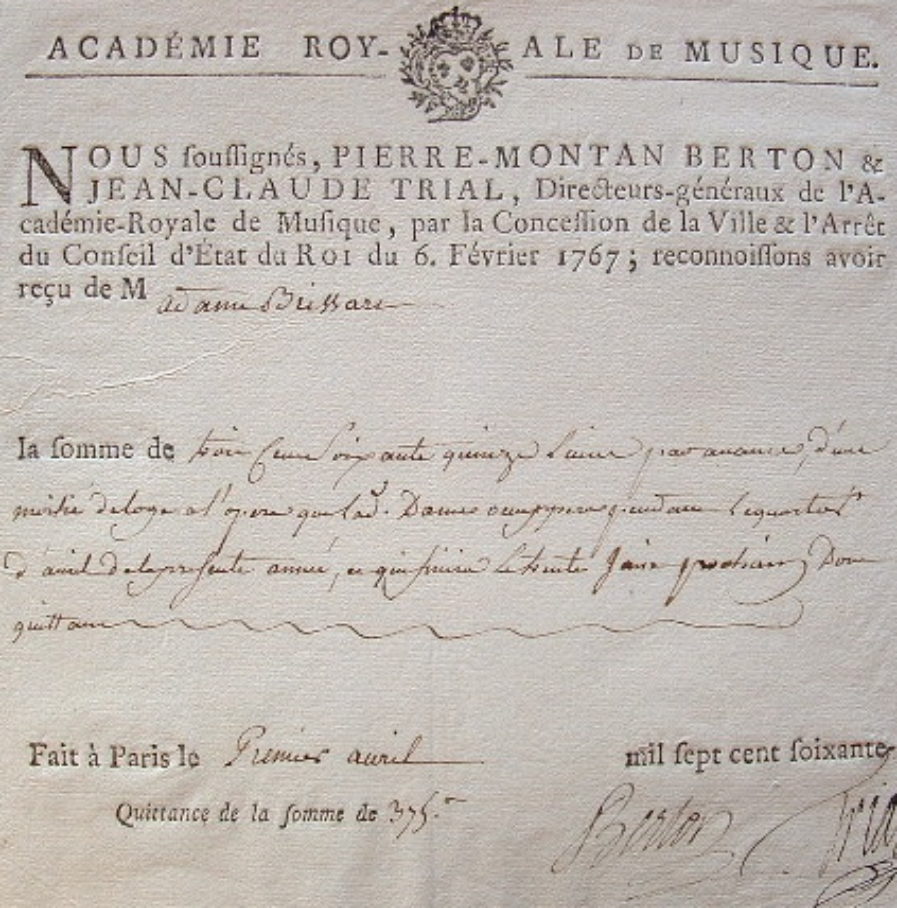 ACADÉMIE ROY-ALE DE MUSIQUE.
NOUS ſouſſignés, PIERRE-MONTAN BERTON &
JEAN-CLAUDE TRIAL, Directeurs-généraux de l'A-
cadémie-Royale de Muſique, par la Conceſſion de la Ville & l'Arrêt
du Conſeil d'État du ROI du 6. Février 1767; reconnoiſſons avoir
reçu de M adame Brissart
la ſomme de trois Cent Soixante quinze Livres par avance, d'une
moitié de loge a l'opera que lad. Dame occuppera pendant le quartier
d'avril de la presente année, et qui finira le trente Juin prochain, Dont
quittance
Fait à Paris le Premier avril mil ſept cent ſoixante
Quittance de la ſomme de 375.
Berton Trial